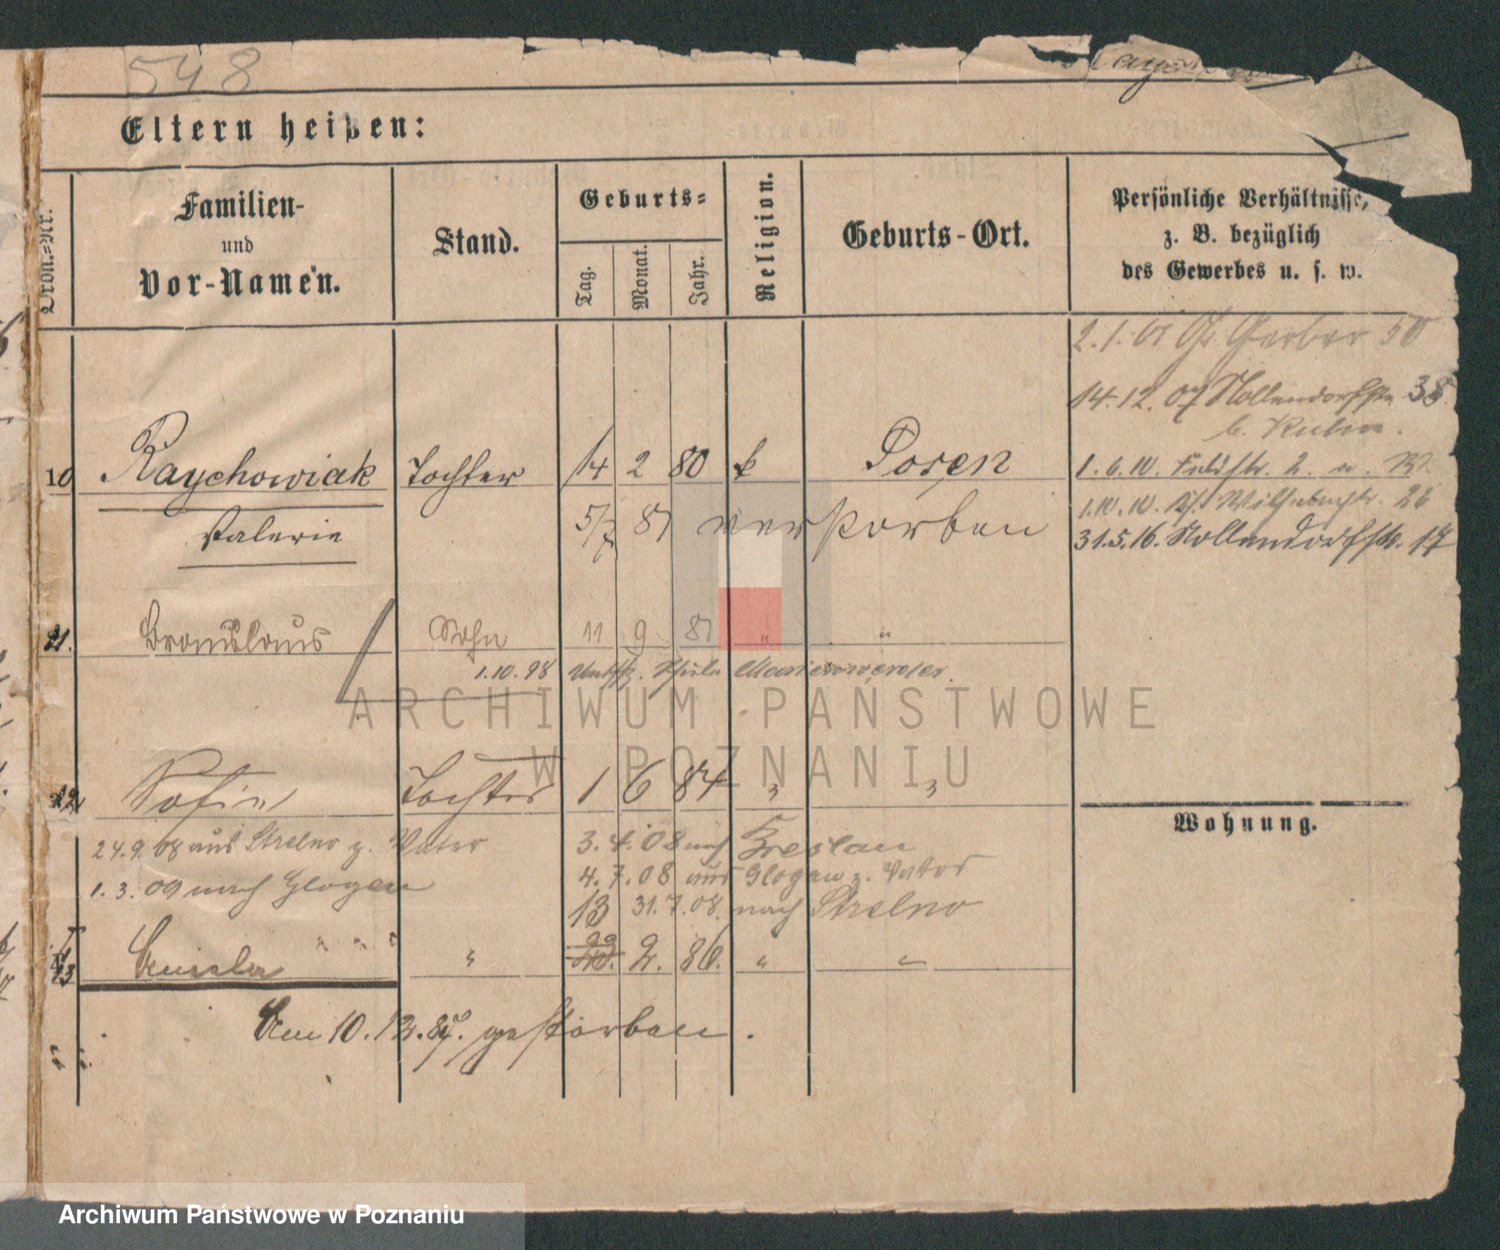 548
Eltern heißen:
Ordn.-Nr.
Familien-
und
Vor-Namen.
Stand.
Geburts-
Tag.
Monat.
Jahr.
Religion.
Geburts-Ort.
Persönliche Verhältnisse,
z. B. bezüglich
des Gewerbes u. s. w.
2.1.01 Gr. Gerber 50
14.12.07 Nollendorfstr. 38
b.
10 Raychowiak Tochter 14 2 80 k Posen
1.6.10. Feldstr. 2.
Valerie
5/7 81 verstorben
1.10.10. 26
31.5.16. Nollendorfstr. 17
11. Bronislaus Sohn 11 9 81 " "
1.10.98 Schule Marienwerder.
ARCHIWUM PAŃSTWOWE
W POZNANIU
12. Sofie Tochter 1 6 84 " "
Wohnung.
24.9.08 aus Strelno z. Vater
3.4.08 nach Breslau
4.7.08 aus Glogau z. Vater
1.3.09 nach Glogau
13 31.7.08. nach Strelno
13 " 2. 86. " "
Am 10.12.87. gestorben.
Archiwum Państwowe w Poznaniu